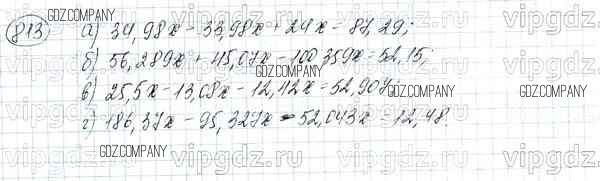 813 а) 34,98x - 33,98x + 24x = 87,29;
б) 56,289x + 45,07x - 100,359x = 52,15;
в) 25,5x - 13,08x - 12,42x = 52,907;
г) 186,37x - 95,327x - 52,043x = 12,48.
GDZ.COMPANY
GDZ.COMPANY
GDZ.COMPANY
GDZ.COMPANY
GDZ.COMPANY
vipgdz.ru
vipgdz.ru
vipgdz.ru
vipgdz.ru